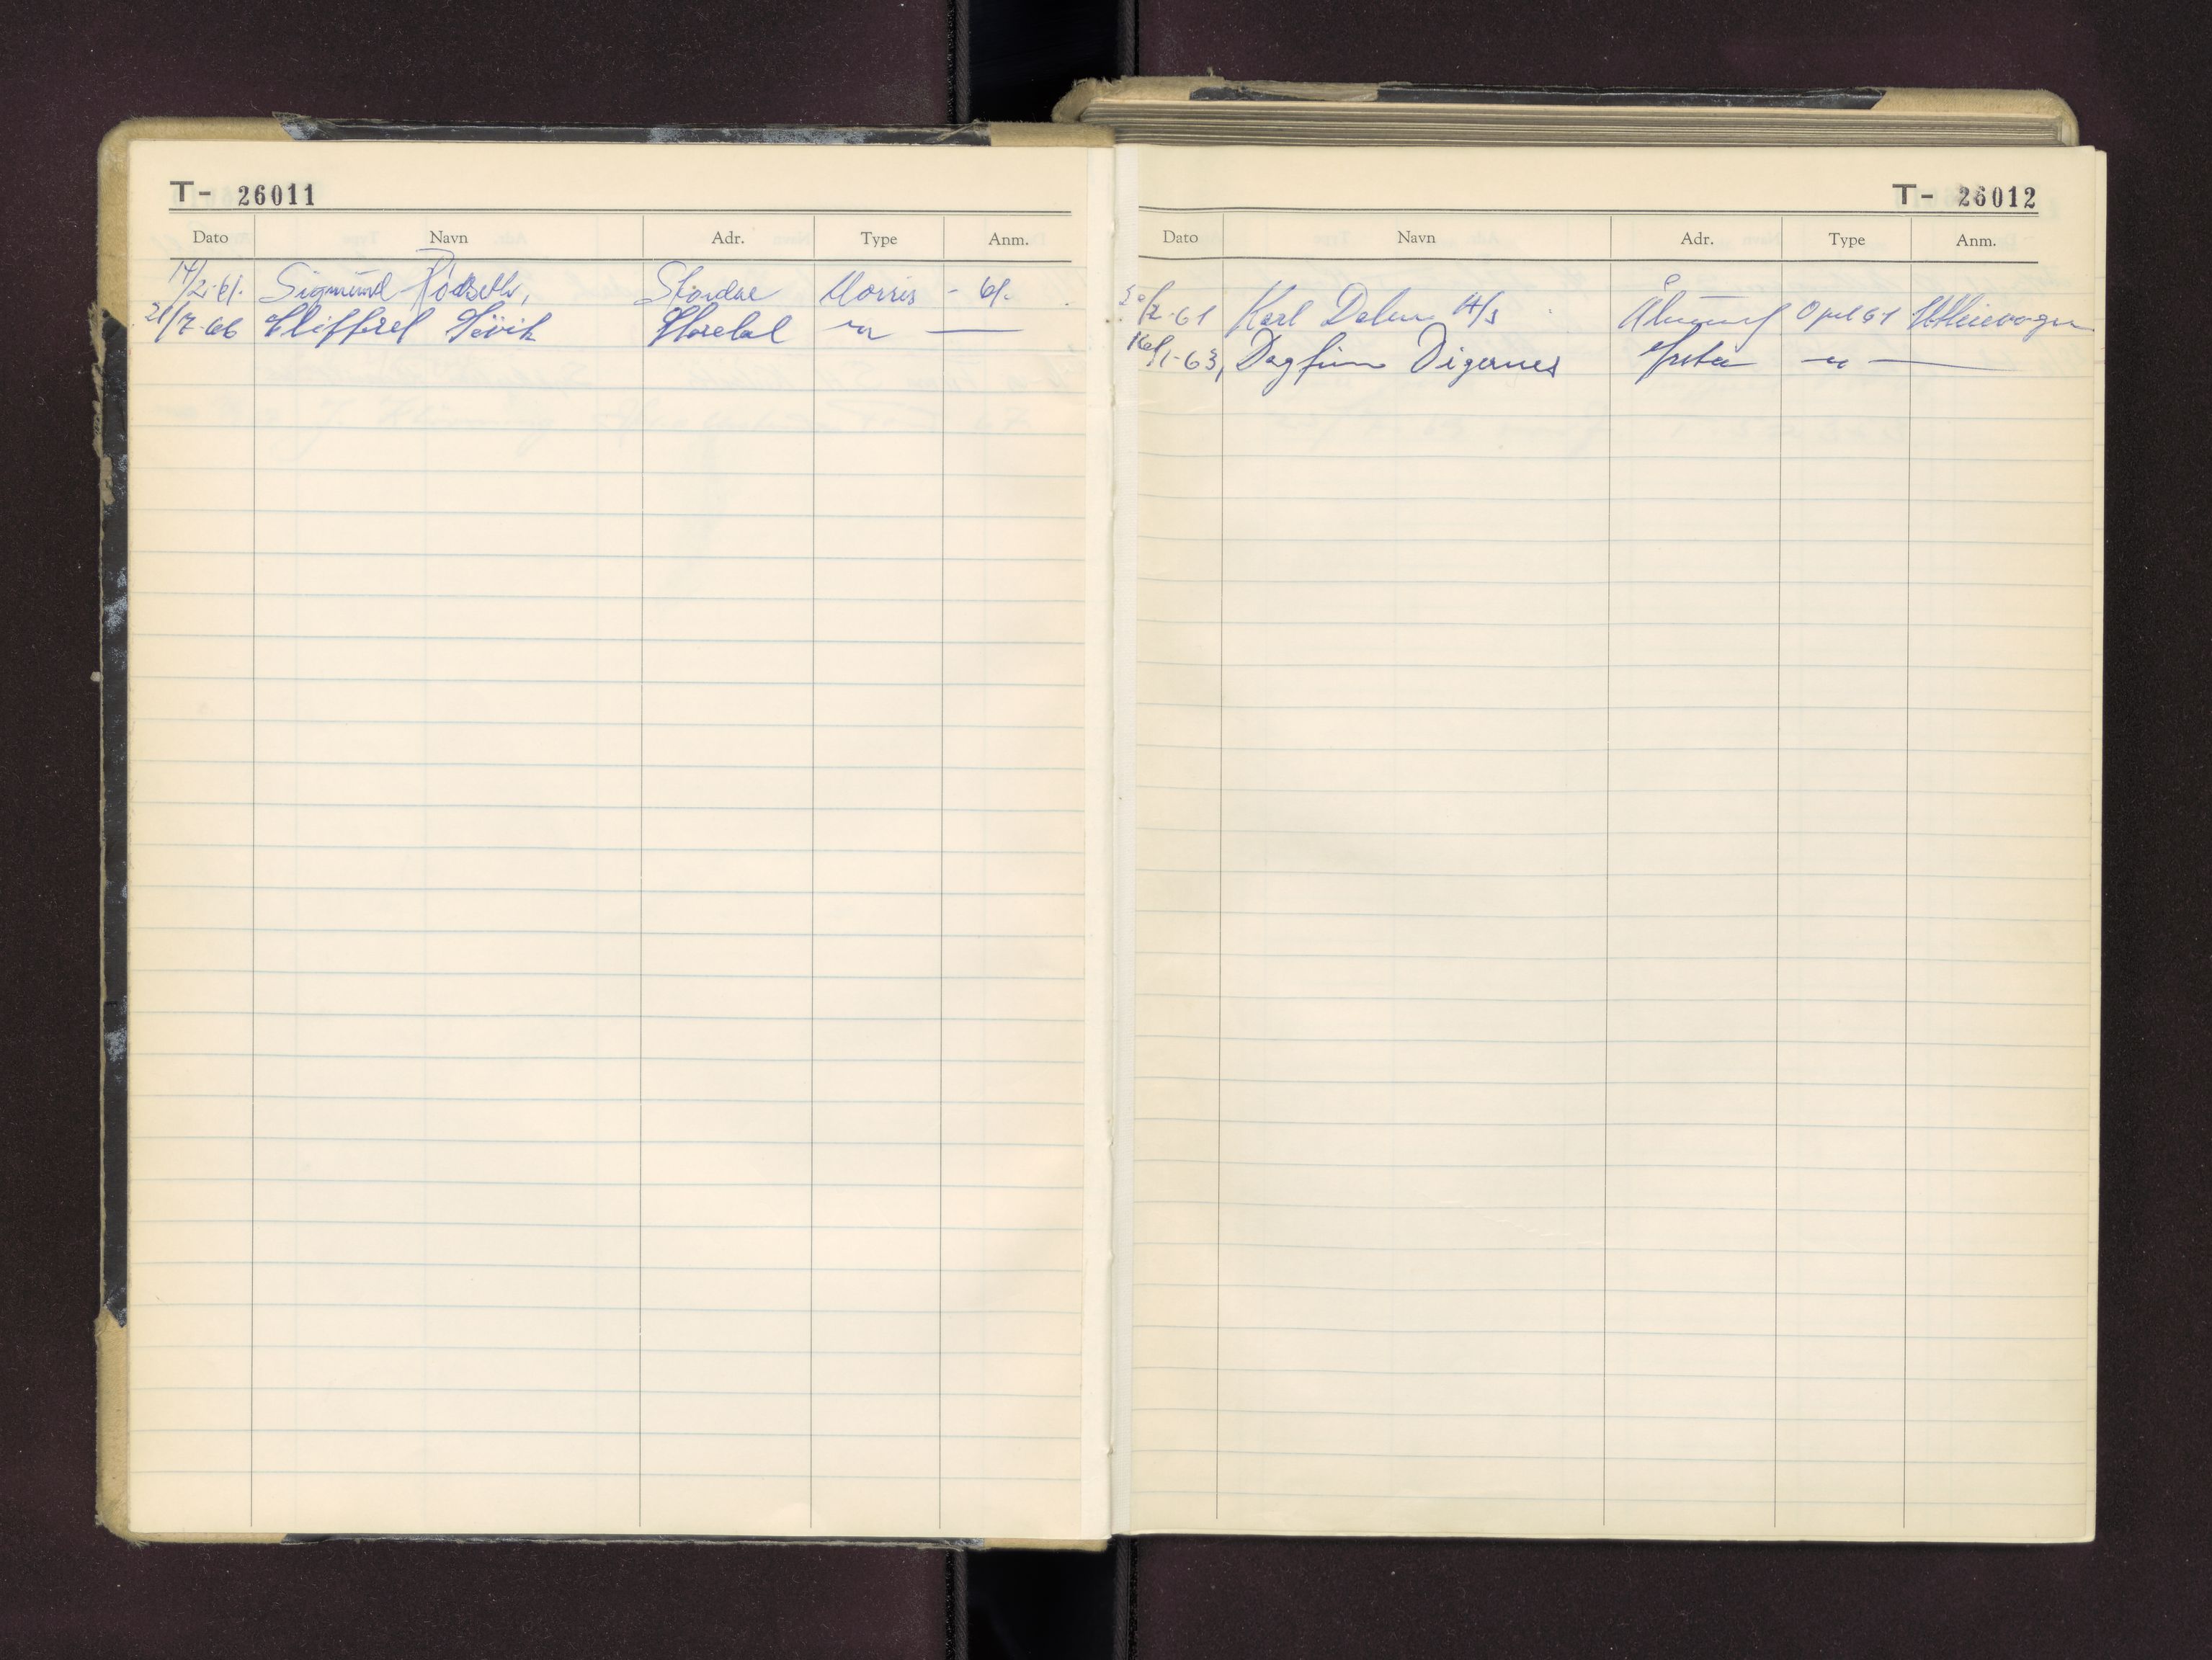 T- 26011
Dato Navn Adr. Type Anm.
17/2-61. Sigmund Stordal Morris - 61.
21/7-66
T- 26012
Dato Navn Adr. Type Anm.
20/2-61 Karl Dalen A/S Ålesund Opel 61 Utleievogn
16/1-63, Dagfinn Digernes Ørsta — " —